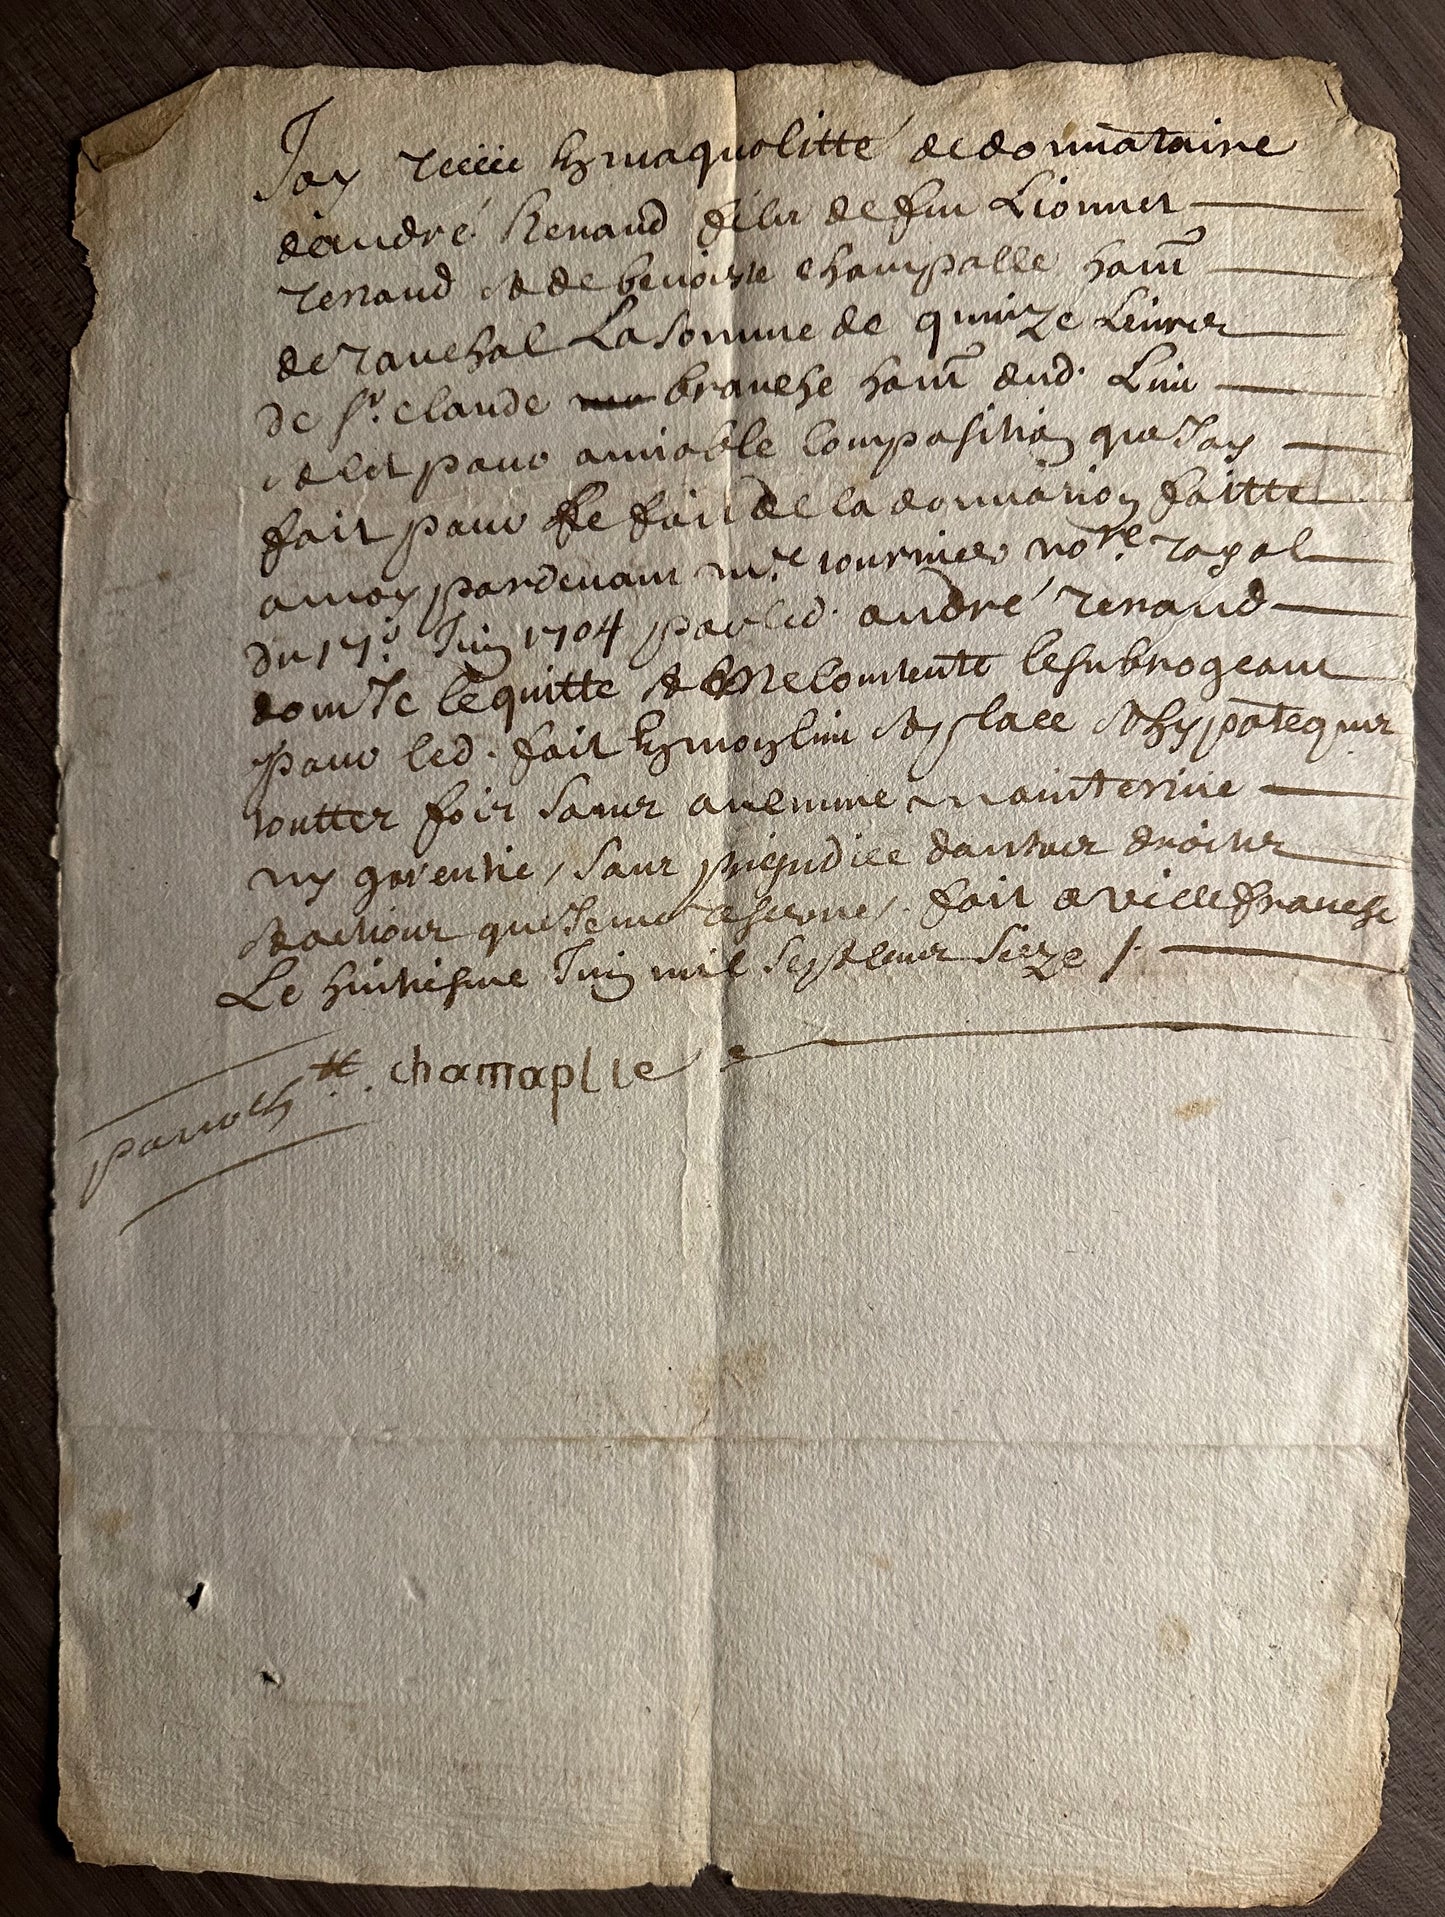 Jay receu en ma qualitté de donnataire
dandré Renaud fils de feu Lionnet
renaud & de benoiste champalle habt
de ranchal La somme de quinze Livres
De sr. claude branche habt dud. Lieu
& cest pour amiable composition que Jay
fait pour le fait de la donnation faitte
a moy pardevant me. tournier nore royal
Du 17e. Juin 1704 par led. andré renaud
dont Je le quitte & me contente le subrogeant
pour led. fait en mon lieu & place & hypoteques
touttes fois sans aucune maintenue
ny garentie, sans prejudice dautres droits
& actions que Je me reserve, fait a villefranche
Le huitiesme Juin mil sept cens seize /.
chamaplle